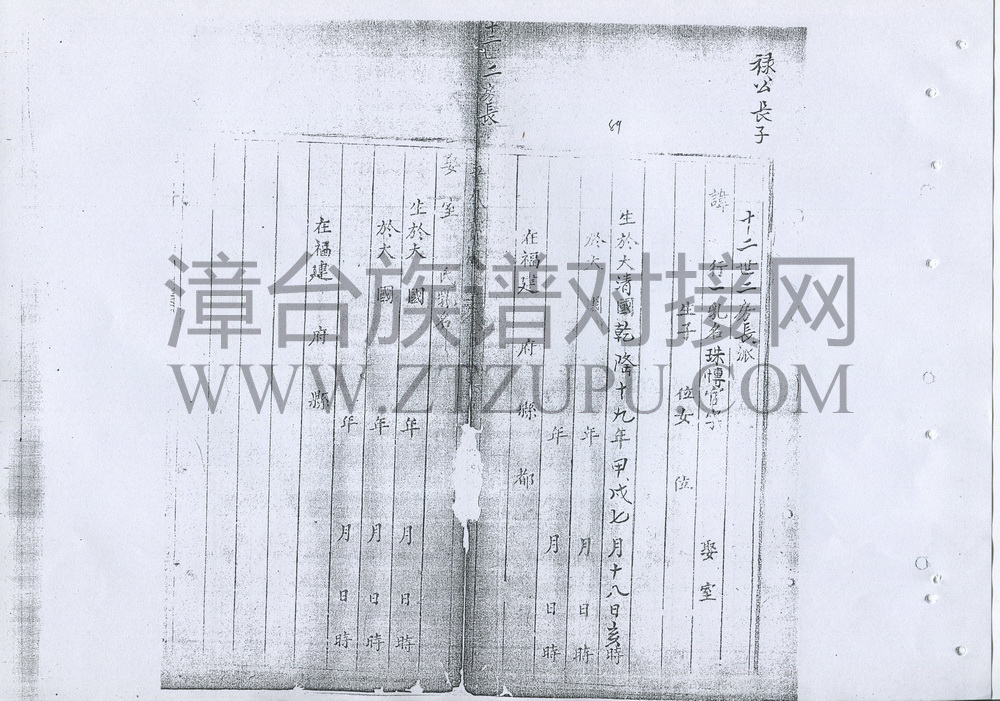 禄公長子
89
十二世二房長派
諱 行一乳名珠博官字 娶室
生子 位女 位
生於大清國乾隆十九年甲戌七月十八日亥時
於大 國 年 月 日 時
年 月 日 時
在福建 府 縣 都
十二世二房長
娶室 氏乳名
生於大 國 年 月 日 時
於大 國 年 月 日 時
年 月 日 時
在福建 府 縣
漳台族谱对接网
WWW.ZTZUPU.COM